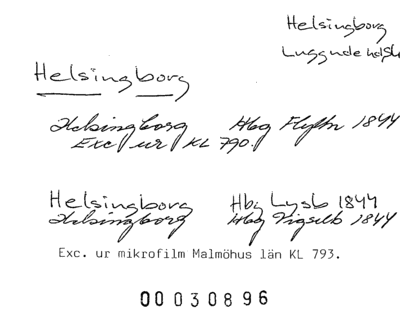 Helsingborg
Luggude hdsk
Helsingborg
Helsingborg Hbg Flyttn 1844
Exc ur KL 790.
Helsingborg Hbg Lysb 1844
Helsingborg Hbg Vigselb 1844
Exc. ur mikrofilm Malmöhus län KL 793.
00030896